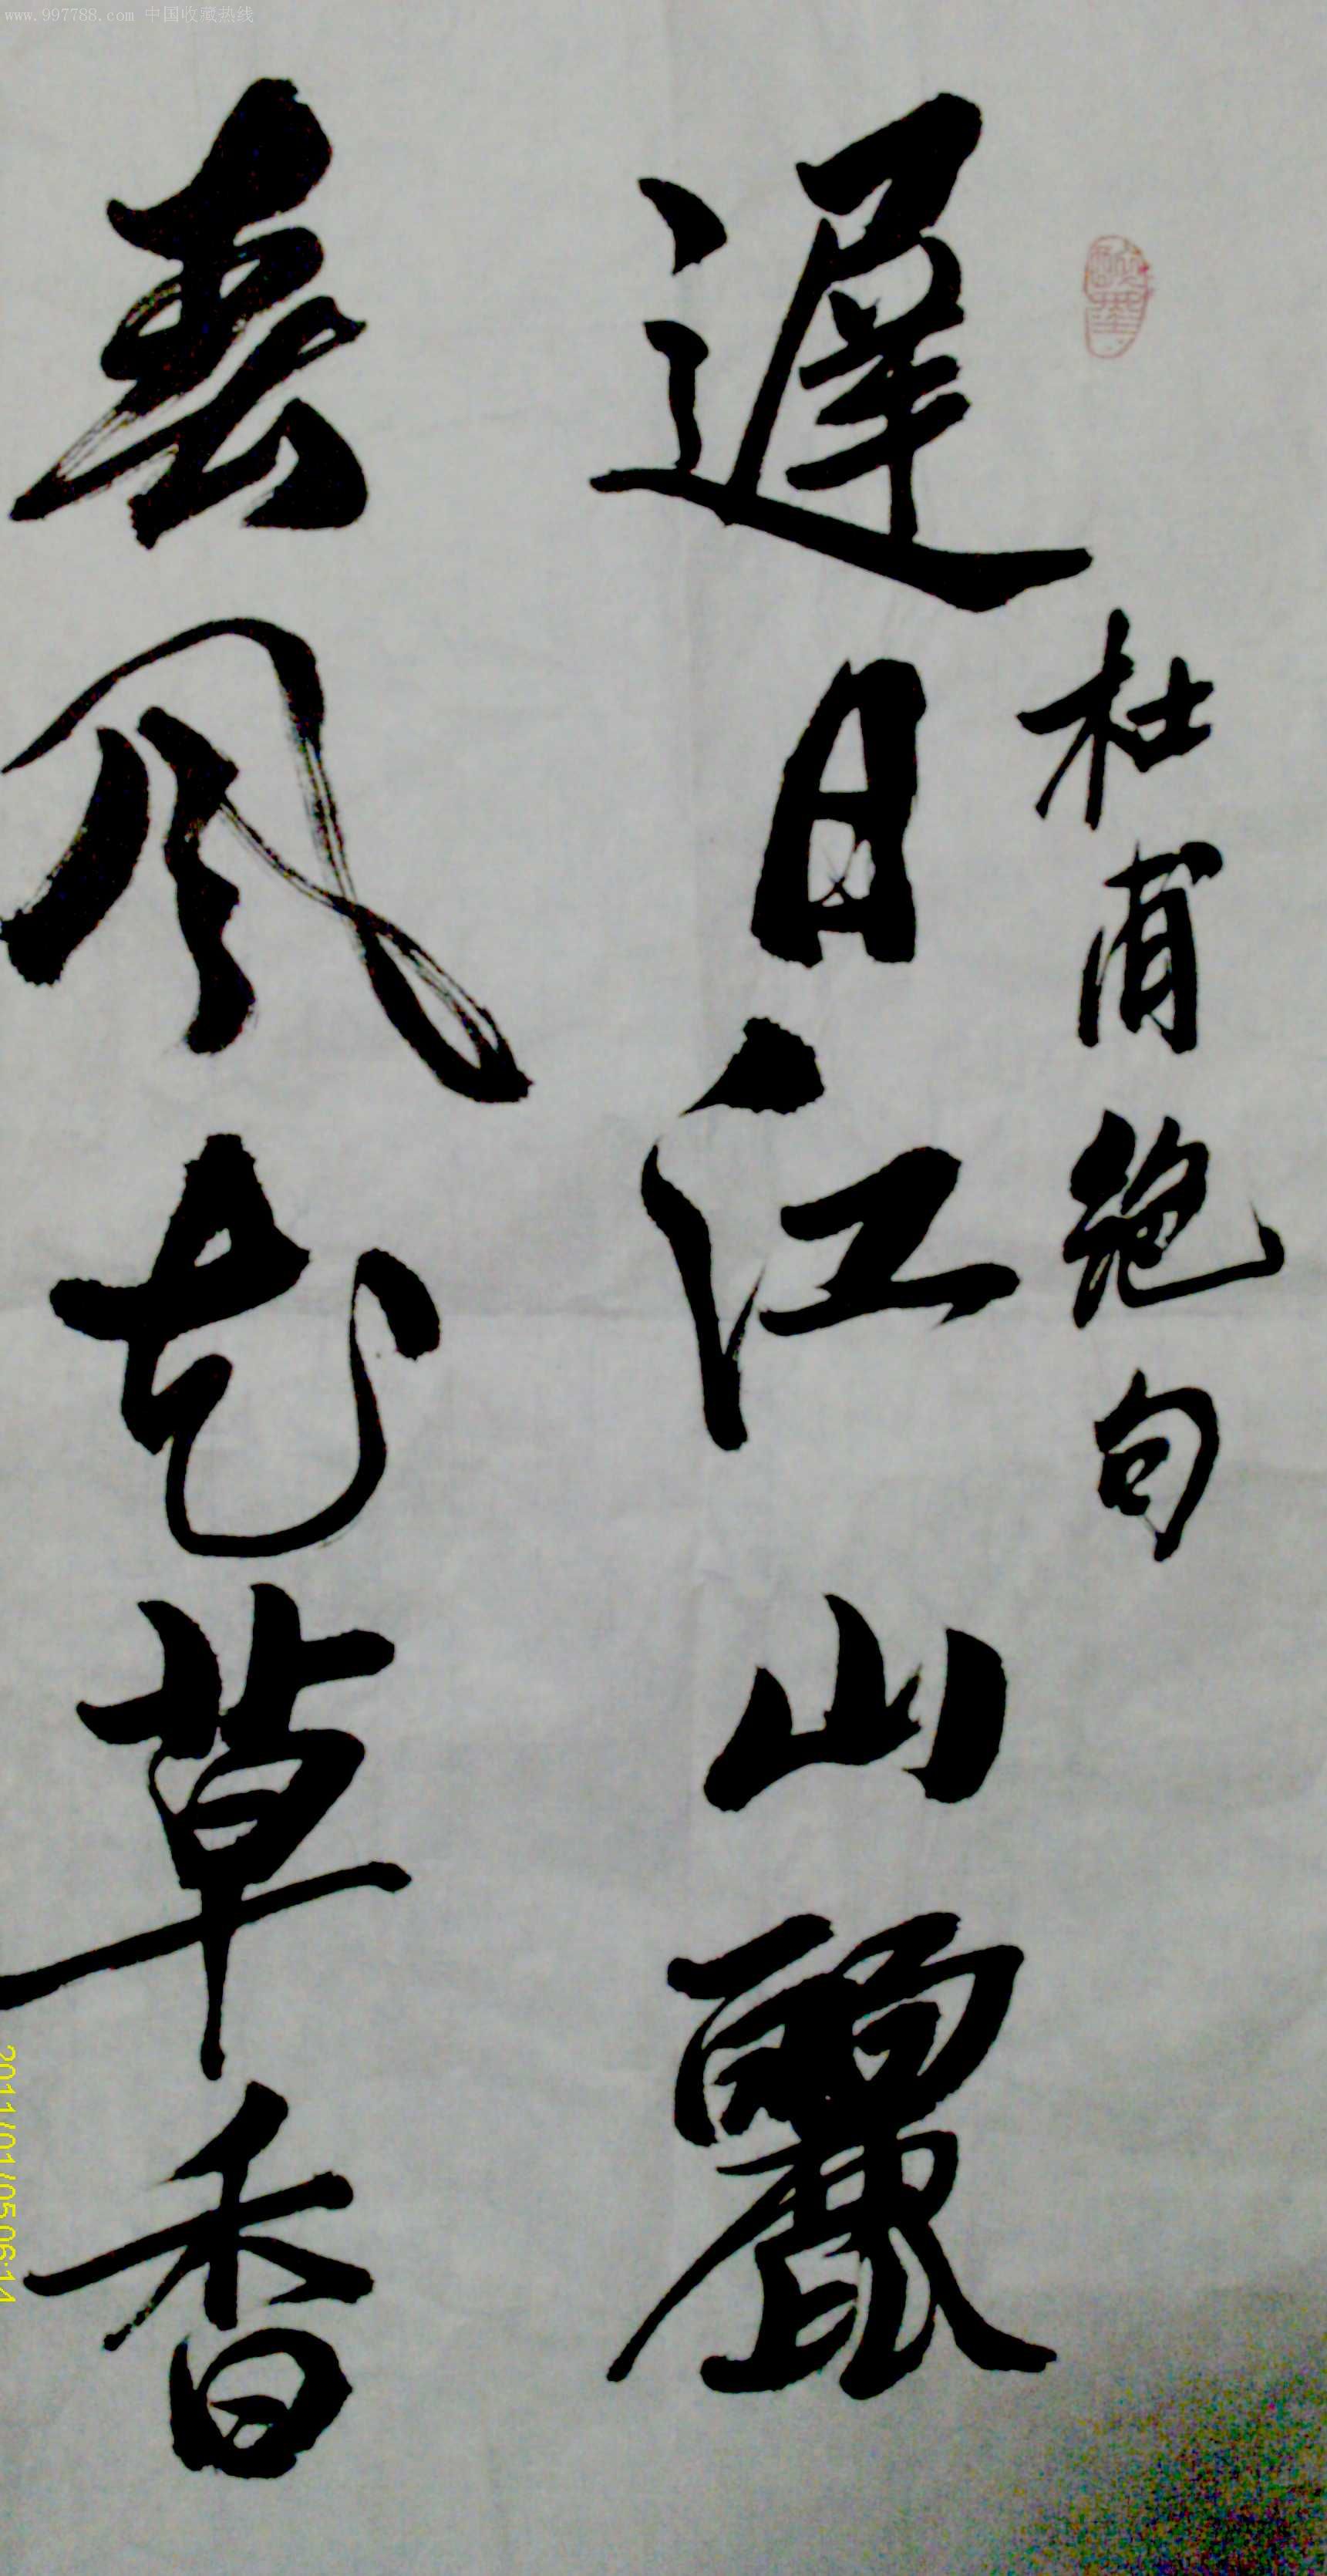 www.997788.com 中国收藏热线
杜甫絕句
遲日江山麗
春风花草香
2011/01/05 06:14